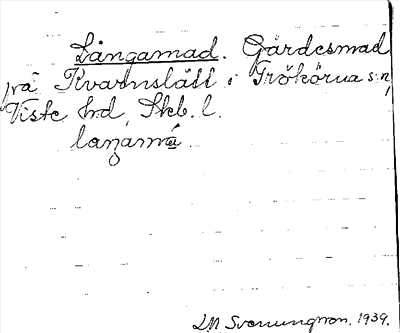 Långamad. Gärdesmad
på Kvarnslätt i Trökörna s:n,
Viste hd, Skb. l.
laŋamá.
LM Svenungsson. 1939.